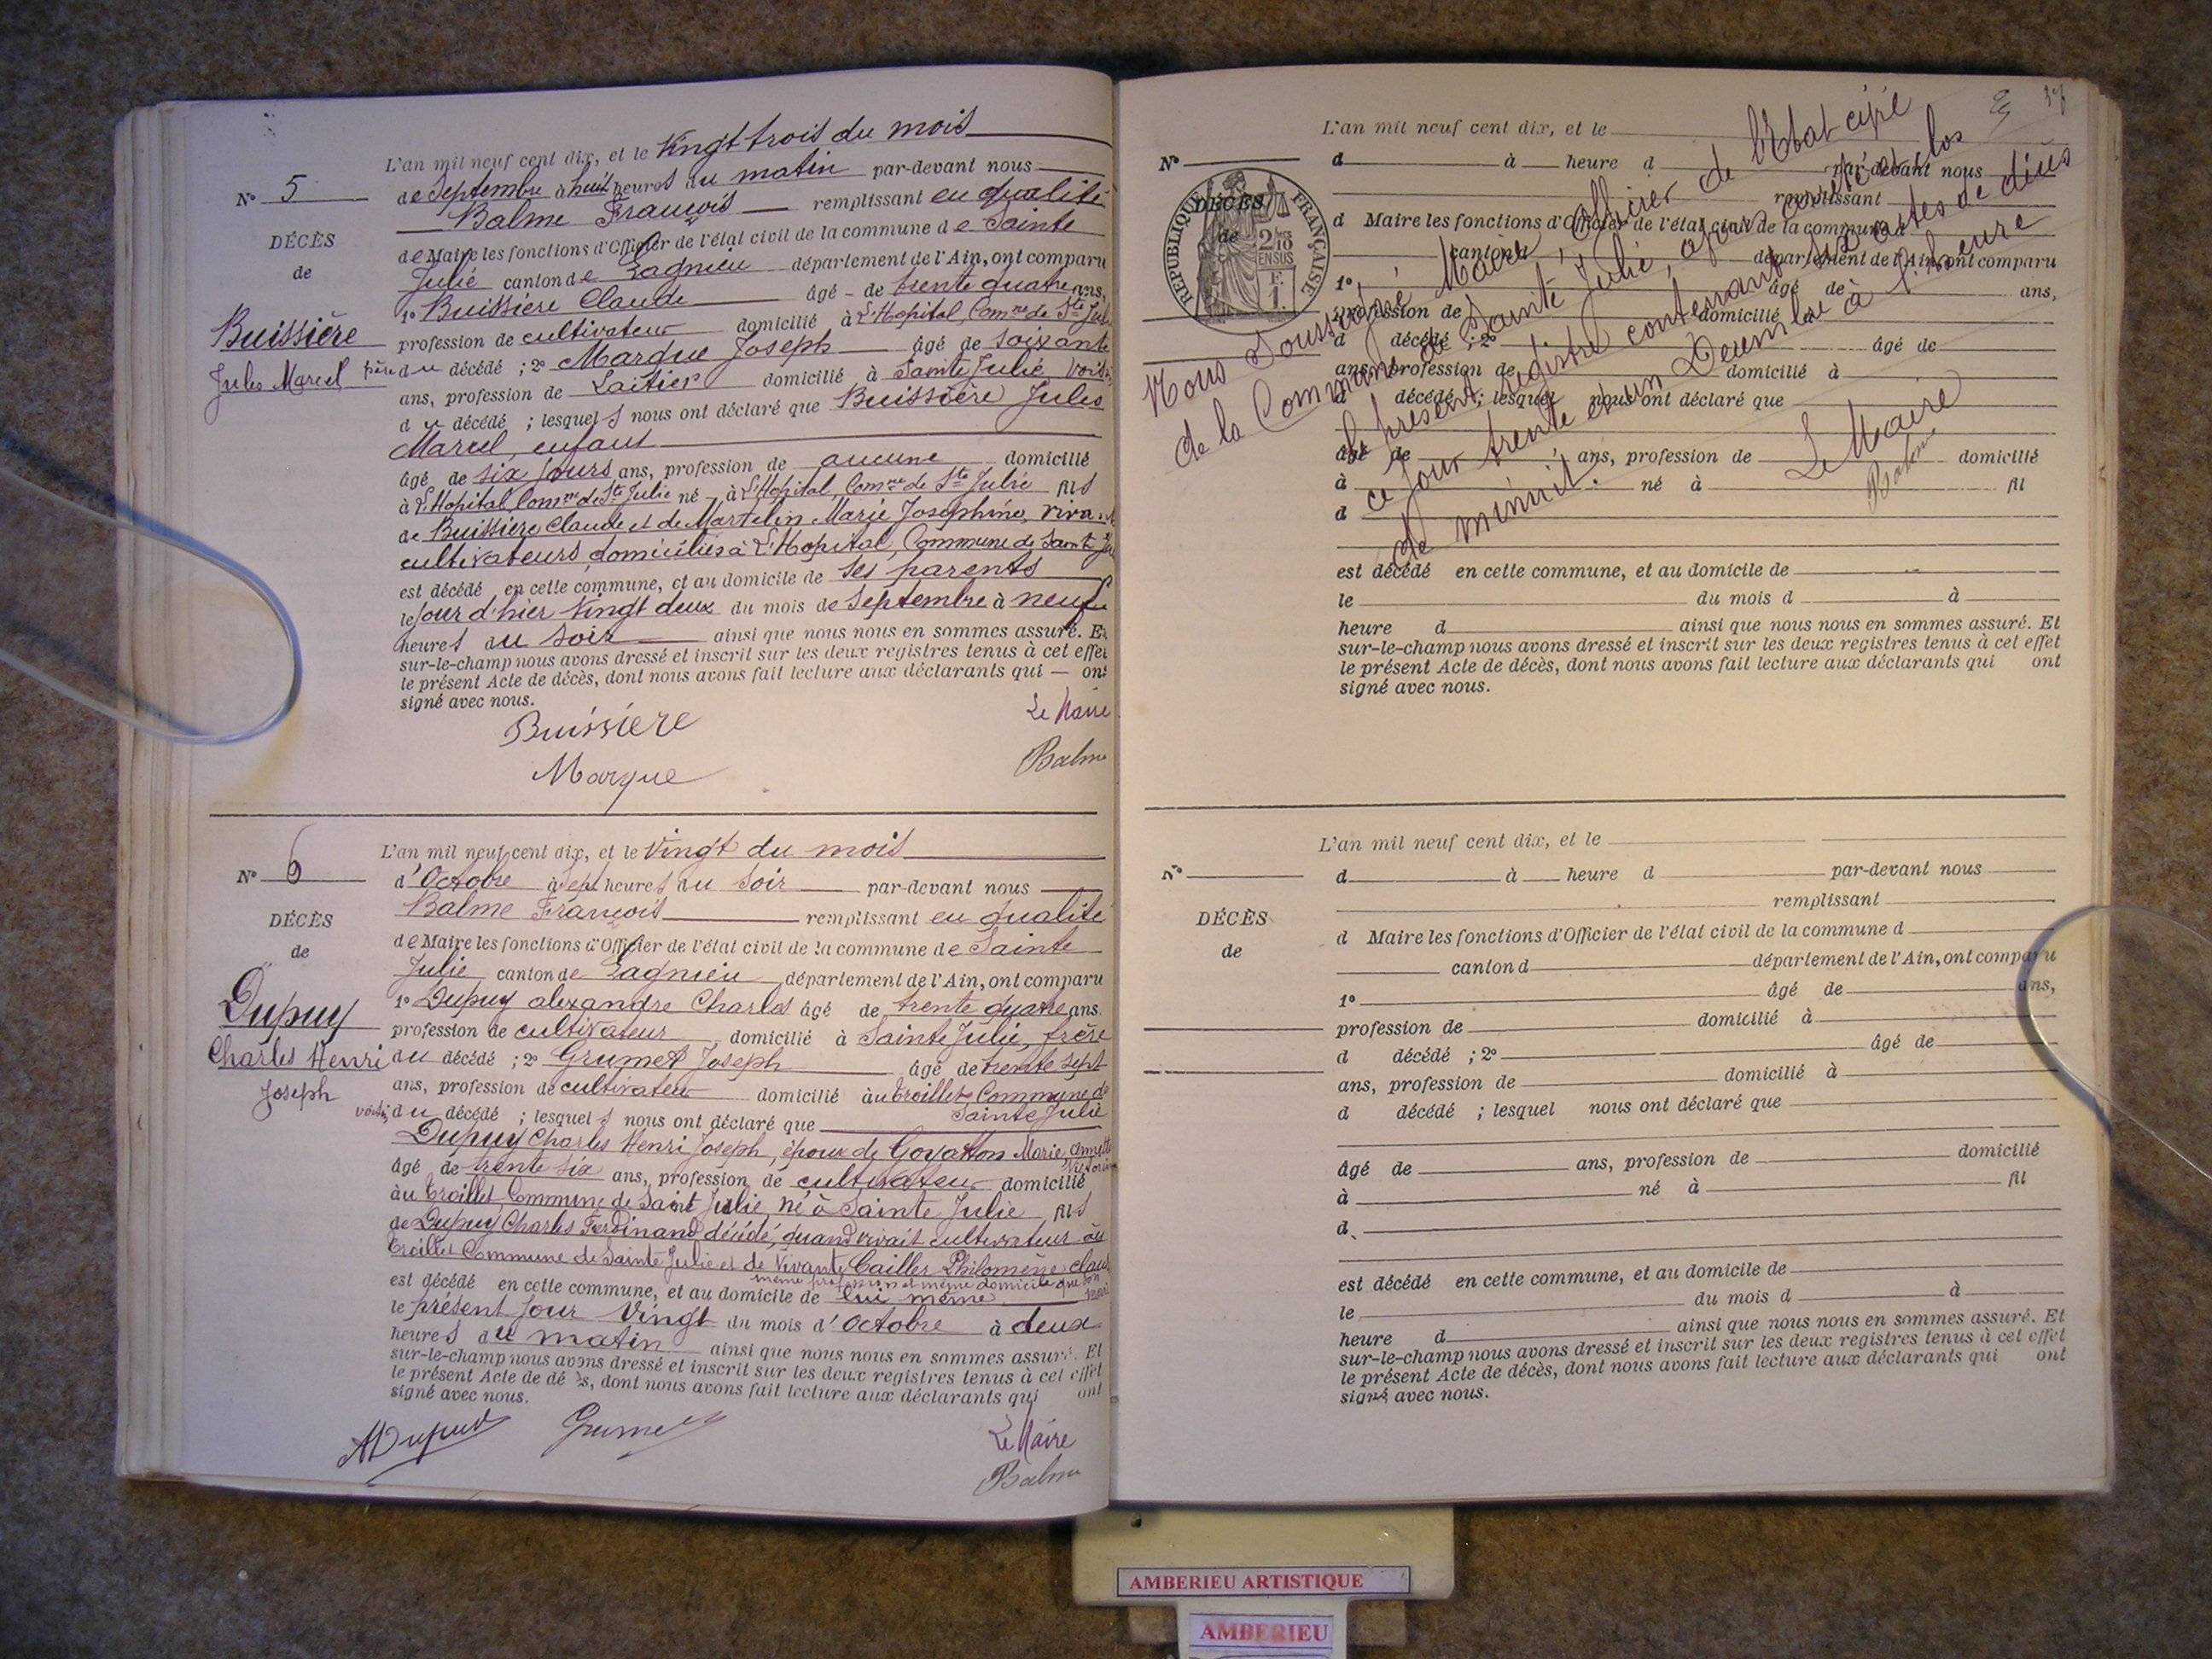 L'an mil neuf cent dix, et le Vingt trois du mois
N° 5
de Septembre à huit heures du matin par-devant nous
Balme François remplissant en qualité
DÉCÈS
de Maire les fonctions d'Officier de l'état civil de la commune de Sainte
de
Julie canton de Lagnieu département de l'Ain, ont comparu
1° Buissière Claude âgé de trente quatre ans,
Buissière
profession de cultivateur domicilié à L'Hopital, Comne de Ste Julie
Jules Marcel
père du décédé ; 2° Marque Joseph âgé de soixante
ans, profession de Laitier domicilié à Sainte Julie voisin
du décédé ; lesquels nous ont déclaré que Buissière Jules
Marcel, enfant
âgé de six jours ans, profession de aucune domicilié
à L'Hopital Comne de Ste Julie né à L'Hopital, Comne de Ste Julie fils
de Buissière Claude et de Martelin Marie Josephine, vivant
cultivateurs domiciliés à L'Hopital, Commune de Sainte Ju
est décédé en cette commune, et au domicile de ses parents
le jour d'hier Vingt deux du mois de Septembre à neuf
heures du soir ainsi que nous nous en sommes assuré. Et
sur-le-champ nous avons dressé et inscrit sur les deux registres tenus à cet effet
le présent Acte de décès, dont nous avons fait lecture aux déclarants qui — ont
signé avec nous.
Buissière
Le Maire
Marque
Balme
L'an mil neuf cent dix, et le Vingt du mois
N° 6
d'Octobre à Sept heures du Soir par-devant nous
Balme François remplissant en qualité
DÉCÈS
de Maire les fonctions d'Officier de l'état civil de la commune de Sainte
de
Julie canton de Lagnieu département de l'Ain, ont comparu
1° Dupuy alexandre Charles âgé de trente quatre ans.
Dupuy
profession de cultivateur domicilié à Sainte Julie, frère
Charles Henri
du décédé ; 2° Grumet Joseph âgé de trente sept
Joseph
ans, profession de cultivateur domicilié au Troillet, Commune de
Sainte Julie
voisin du décédé ; lesquels nous ont déclaré que
Dupuy Charles Henri Joseph, époux de Goyatton Marie
âgé de trente six ans, profession de cultivateur domicilié
au Troillet Commune de Saint Julie, né à Sainte Julie fils
de Dupuy Charles Ferdinand décédé, quand vivait cultivateur au
Troillet Commune de Sainte Julie et de Vivante Cailler Philomène
même profession et même domicile que son mari
est décédé en cette commune, et au domicile de lui même
le présent jour Vingt du mois d'Octobre à deux
heures du matin ainsi que nous nous en sommes assuré. Et
sur-le-champ nous avons dressé et inscrit sur les deux registres tenus à cet effet
le présent Acte de décès, dont nous avons fait lecture aux déclarants qui ont
signé avec nous.
ADupuy
Grumet
Le Maire
Balme
L'an mil neuf cent dix, et le
N°
d à heure d par-devant nous
DÉCÈS
de
remplissant
d Maire les fonctions d'Officier de l'état civil de la commune d
canton d département de l'Ain, ont comparu
1° âgé de ans,
profession de domicilié à
d décédé ; 2° âgé de
ans, profession de domicilié à
d décédé ; lesquel nous ont déclaré que
âgé de ans, profession de domicilié
à né à fil
d
RÉPUBLIQUE FRANÇAISE
2/10
EN SUS
F.
1.
Nous Soussigné Maire, Officier de l'Etat civil
de la Commune de Sainte Julie, avons coté et clos
le présent registre contenant six actes de décès
ce jour trente et un Décembre à l'heure
de minuit.
Le Maire
Balme
est décédé en cette commune, et au domicile de
le du mois d à
heure d ainsi que nous nous en sommes assuré. Et
sur-le-champ nous avons dressé et inscrit sur les deux registres tenus à cet effet
le présent Acte de décès, dont nous avons fait lecture aux déclarants qui ont
signé avec nous.
L'an mil neuf cent dix, et le
N°
d à heure d par-devant nous
remplissant
DÉCÈS
de
d Maire les fonctions d'Officier de l'état civil de la commune d
canton d département de l'Ain, ont comparu
1° âgé de ans,
profession de domicilié à
d décédé ; 2° âgé de
ans, profession de domicilié à
d décédé ; lesquel nous ont déclaré que
âgé de ans, profession de domicilié
à né à fil
d
est décédé en cette commune, et au domicile de
le du mois d à
heure d ainsi que nous nous en sommes assuré. Et
sur-le-champ nous avons dressé et inscrit sur les deux registres tenus à cet effet
le présent Acte de décès, dont nous avons fait lecture aux déclarants qui ont
signé avec nous.
AMBERIEU ARTISTIQUE
AMBERIEU